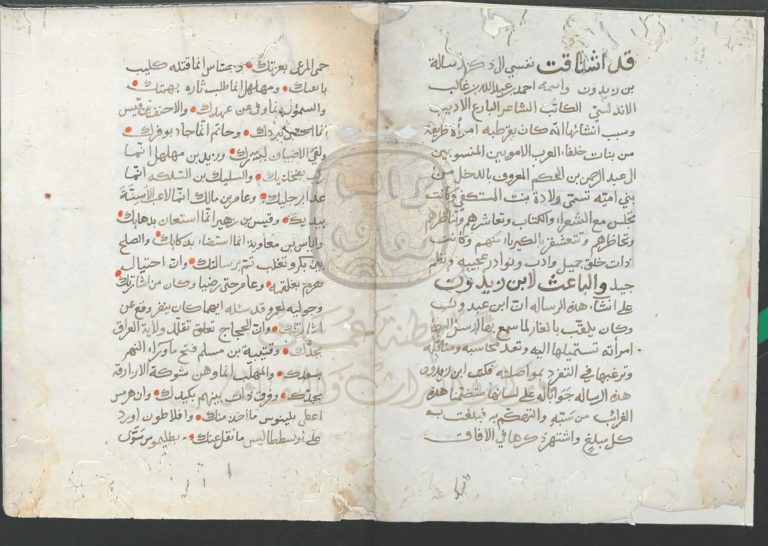 قد اشتاقت نفسي الى ذكر رسالة
بن زيدون واسمه احمد بن عبد الله بن غالب
الاندلسي الكاتب الشاعر البارع الاديب
وسبب انشائها انه كان بقرطبه امرأة ظريفة
من بنات خلفاء العرب الامويين المنسوبين
الى عبد الرحمن بن الحكم المعروف بالداخل من
بني اميه تسمى ولادة بنت المستكفي وكانت
تجلس مع الشعراء والكتاب وتعاشرهم وتناظرهم
وتحاظرهم وتتعشق بالكبراء منهم وكانت
ذات خلق جميل وادب ونوادر عجيبه ونظم
جيد والباعث لابن زيدون
على انشاء هذه الرساله ان ابن عبدوس
وكان يلقب بالفار لما سمع بها ارسل اليها
امرأته تستميلها اليه وتعد محاسنه ومناقبه
وترغبها في التفرد بمواصلته فكتب ابن زيدون
هذه الرساله جوابا له على لسانها ضمنها هذه
الغرائب من سبه والتهكم به فبلغت به
كل مبلغ واشتهر ذكرها في الافاق
حمى المرعى بعزتك وجساس انما قتله كليب
بانفتك ومهلهل انما طلب ثاره بهمتك
والسمؤل انما وفى عن عهدك والاحنف بن قيس
انما احتبى ببردك وحاتم انما جاد بوفرك
ولقي الاضياف ببشرك وزيد بن مهلهل انما
ركب بفخذيك والسليك بن السلكه انما
عدا برجليك وعامر بن مالك انما لاعب الاسنة
بيديك وقيس بن زهير انما استعان بدهائك
واياس بن معاويه انما استضاء بذكائك والصلح
بين بكر وتغلب تم برسالتك وان احتيال
هرم بعلقمه وعامر حتى رضيا وكان من اشارتك
وجوابه لعمر وقد سئله ايهما كان ينفر وقع عن
اشارتك وان الحجاج تقلد ولاية العراق
بجدك وقتيبه بن مسلم فتح ما وراء النهر
بسعدك والمهلب انما وهن شوكة الازارقه
بجدك وفرق ذات بينهم بكيدك وان هرمس
اعطى بلينوس ما اخذ منك وافلاطون اورد
على ارسططاليس ما نقل عنك وبطليموس سوى